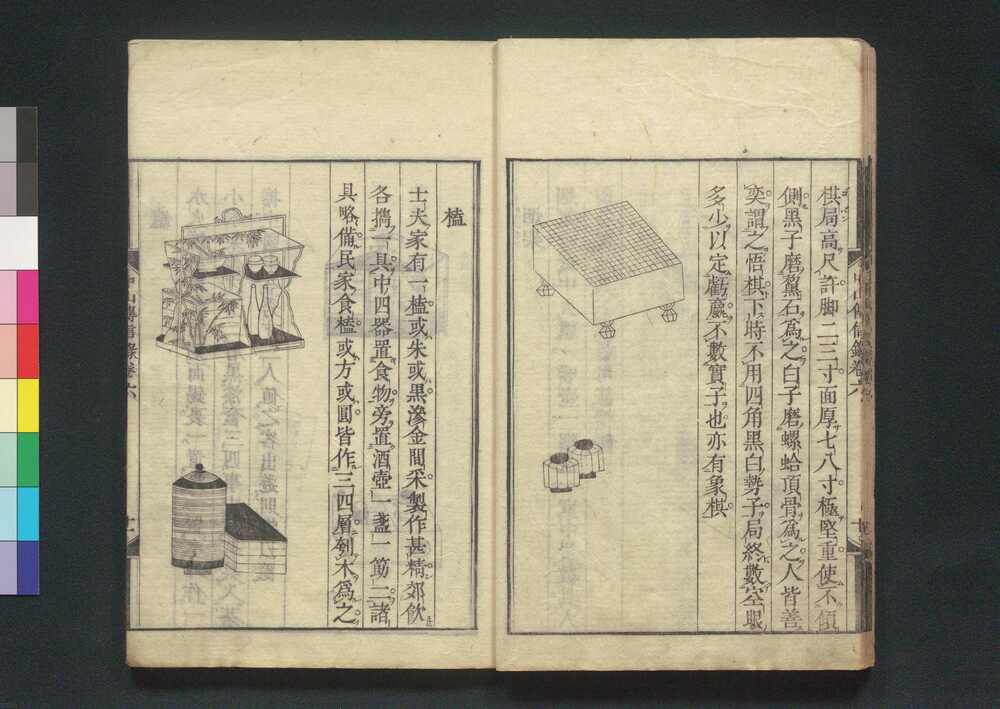 棋局高尺許脚二三寸面厚七八寸極堅重使不傾
側黑子磨黧石爲之白子磨螺蛤頂骨爲之人皆善
奕謂之悟棋下時不用四角黑白勢子局終數空眼
多少以定虧贏不數實子也亦有象棋
中山傳信錄卷六
榼
士夫家有一榼或朱或黑滲金間采製作甚精郊飲
各攜一具中四器置食物旁置酒壺一盞一筯二諸
具略備民家食榼或方或圓皆作三四層刳木爲之
中山傳信錄卷六